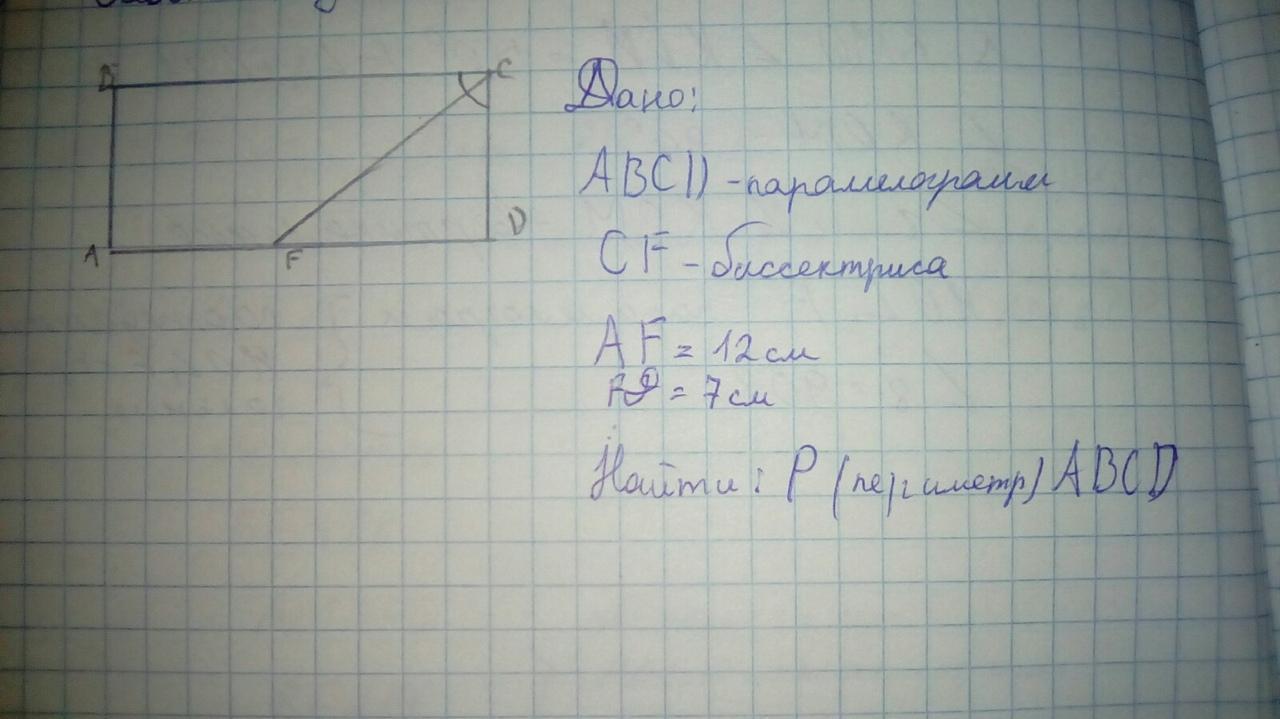 B
C
A
F
D
Дано:
ABCD - парамелограмм
CF - биссектриса
AF = 12 см
FD = 7 см
Найти: P (периметр) ABCD